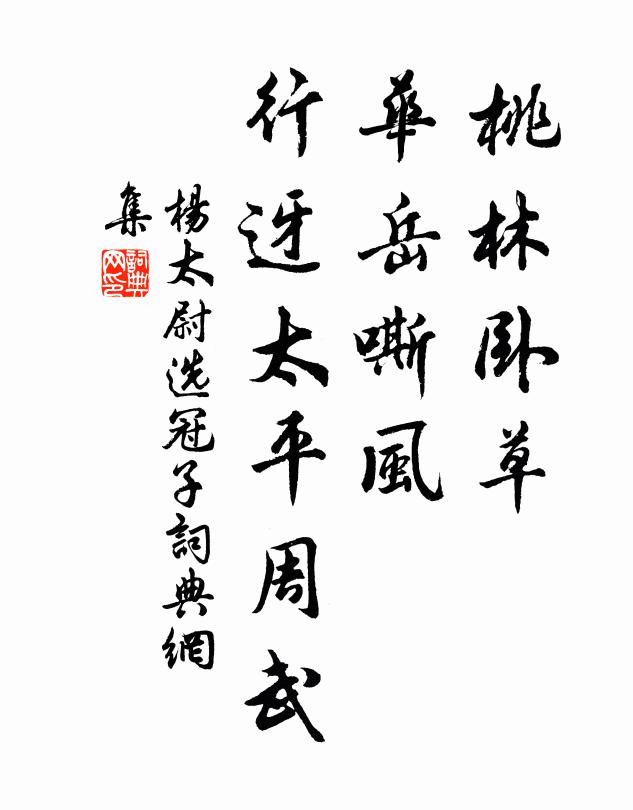 桃林卧草
華岳嘶風
行迓太平周武
楊太尉选冠子詞典網
集
詞典网印